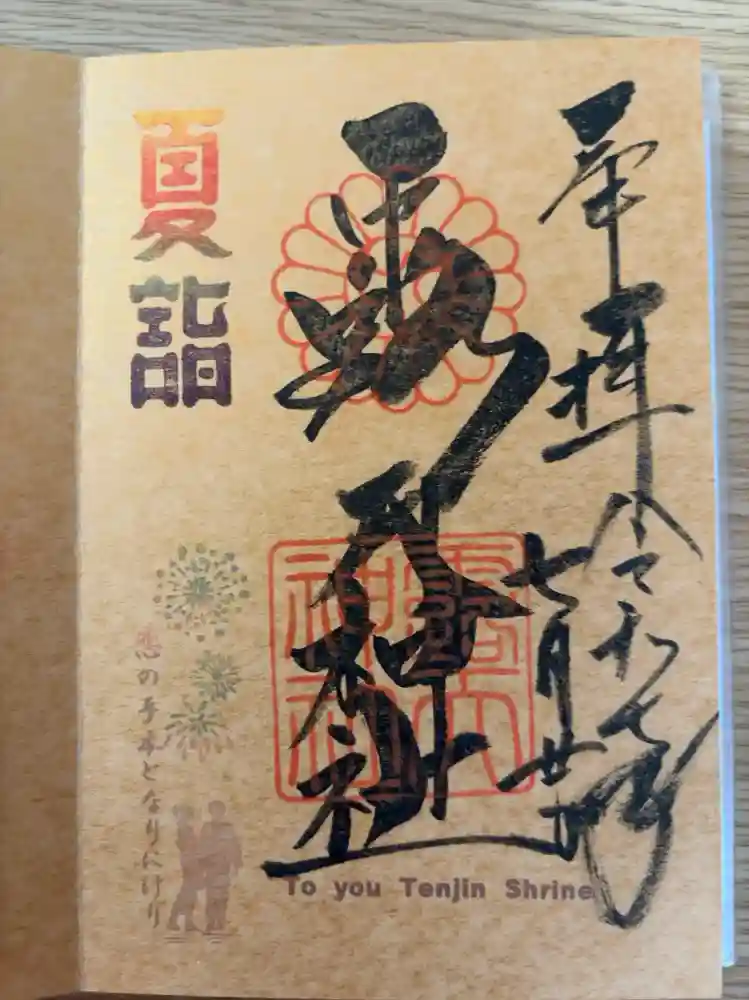 奉拝 令和七年
七月廿
露天神社
露天
神社
夏詣
恋の手本となりにけり
To you Tenjin Shrine